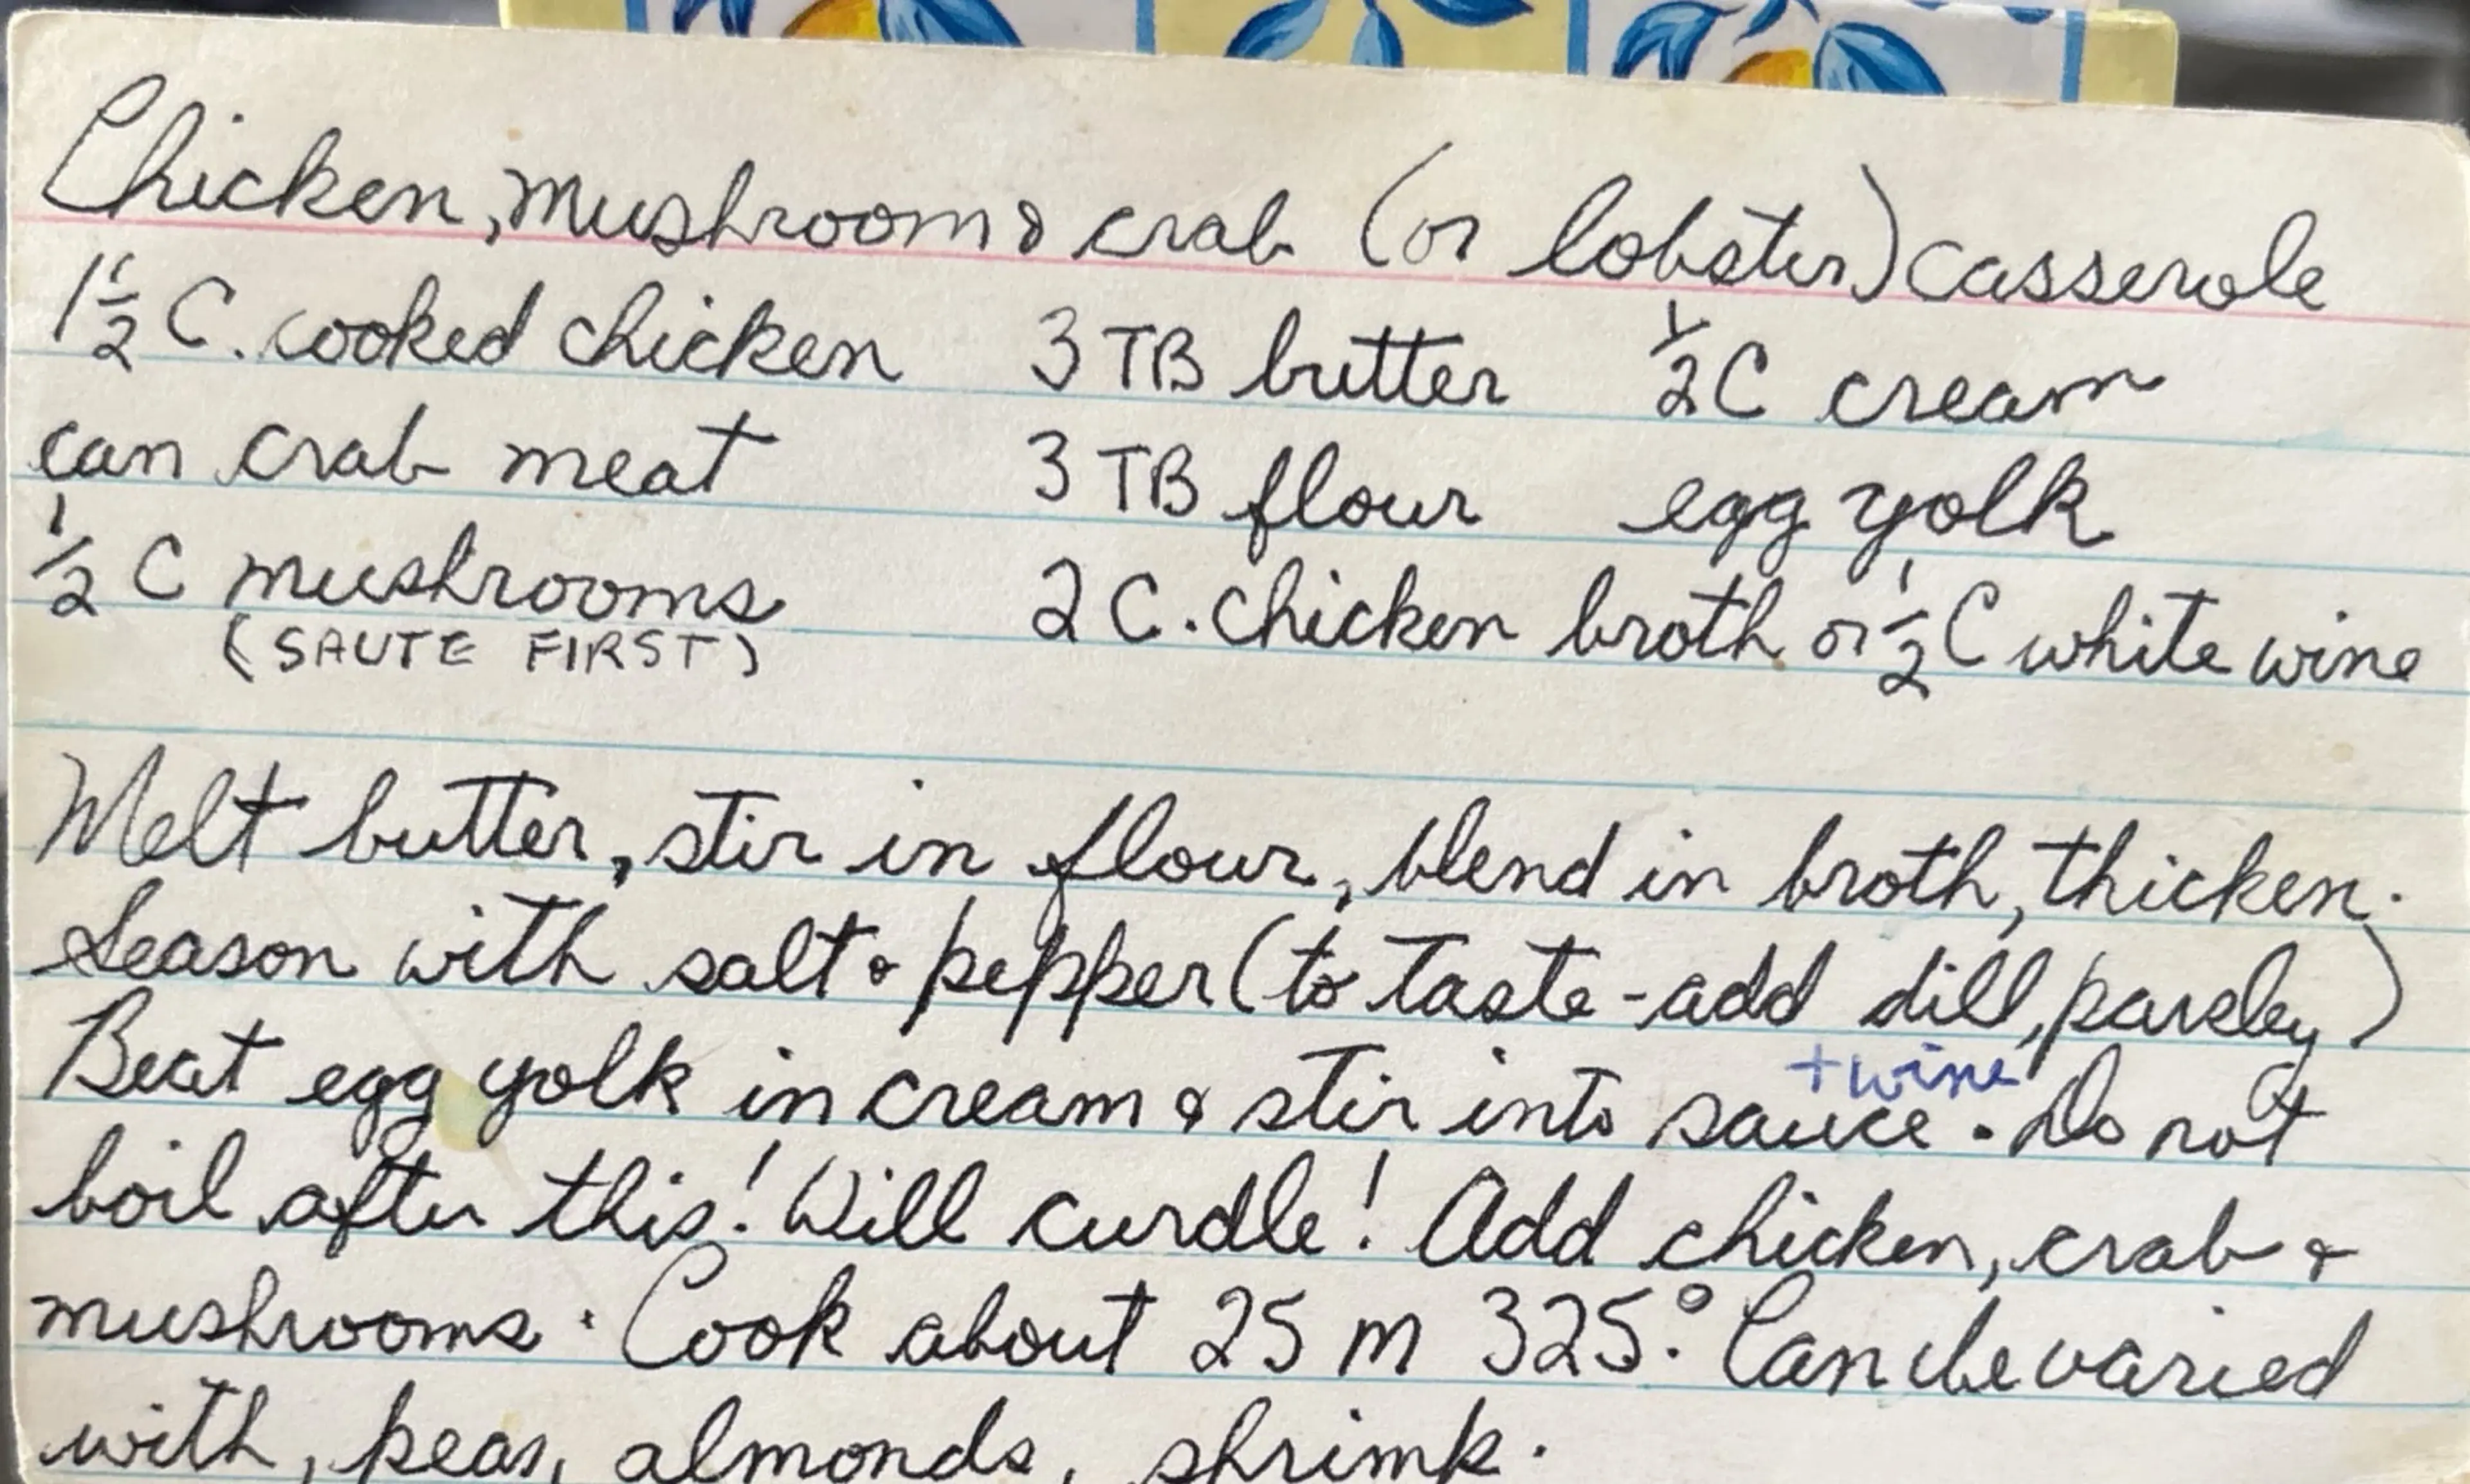 Chicken, mushroom & crab (or lobster) casserole
1 1/2 C. cooked chicken 3 TB butter 1/2 C cream
can crab meat 3 TB flour egg yolk
1/2 C mushrooms 2 C. chicken broth or 1/2 C white wine
(SAUTE FIRST)
Melt butter, stir in flour, blend in broth, thicken.
Season with salt & pepper (to taste - add dill, parsley)
+ wine
Beat egg yolk in cream & stir into sauce. Do not
boil after this! Will curdle! Add chicken, crab &
mushrooms. Cook about 25 m 325°. Can be varied
with, peas, almonds, shrimp.